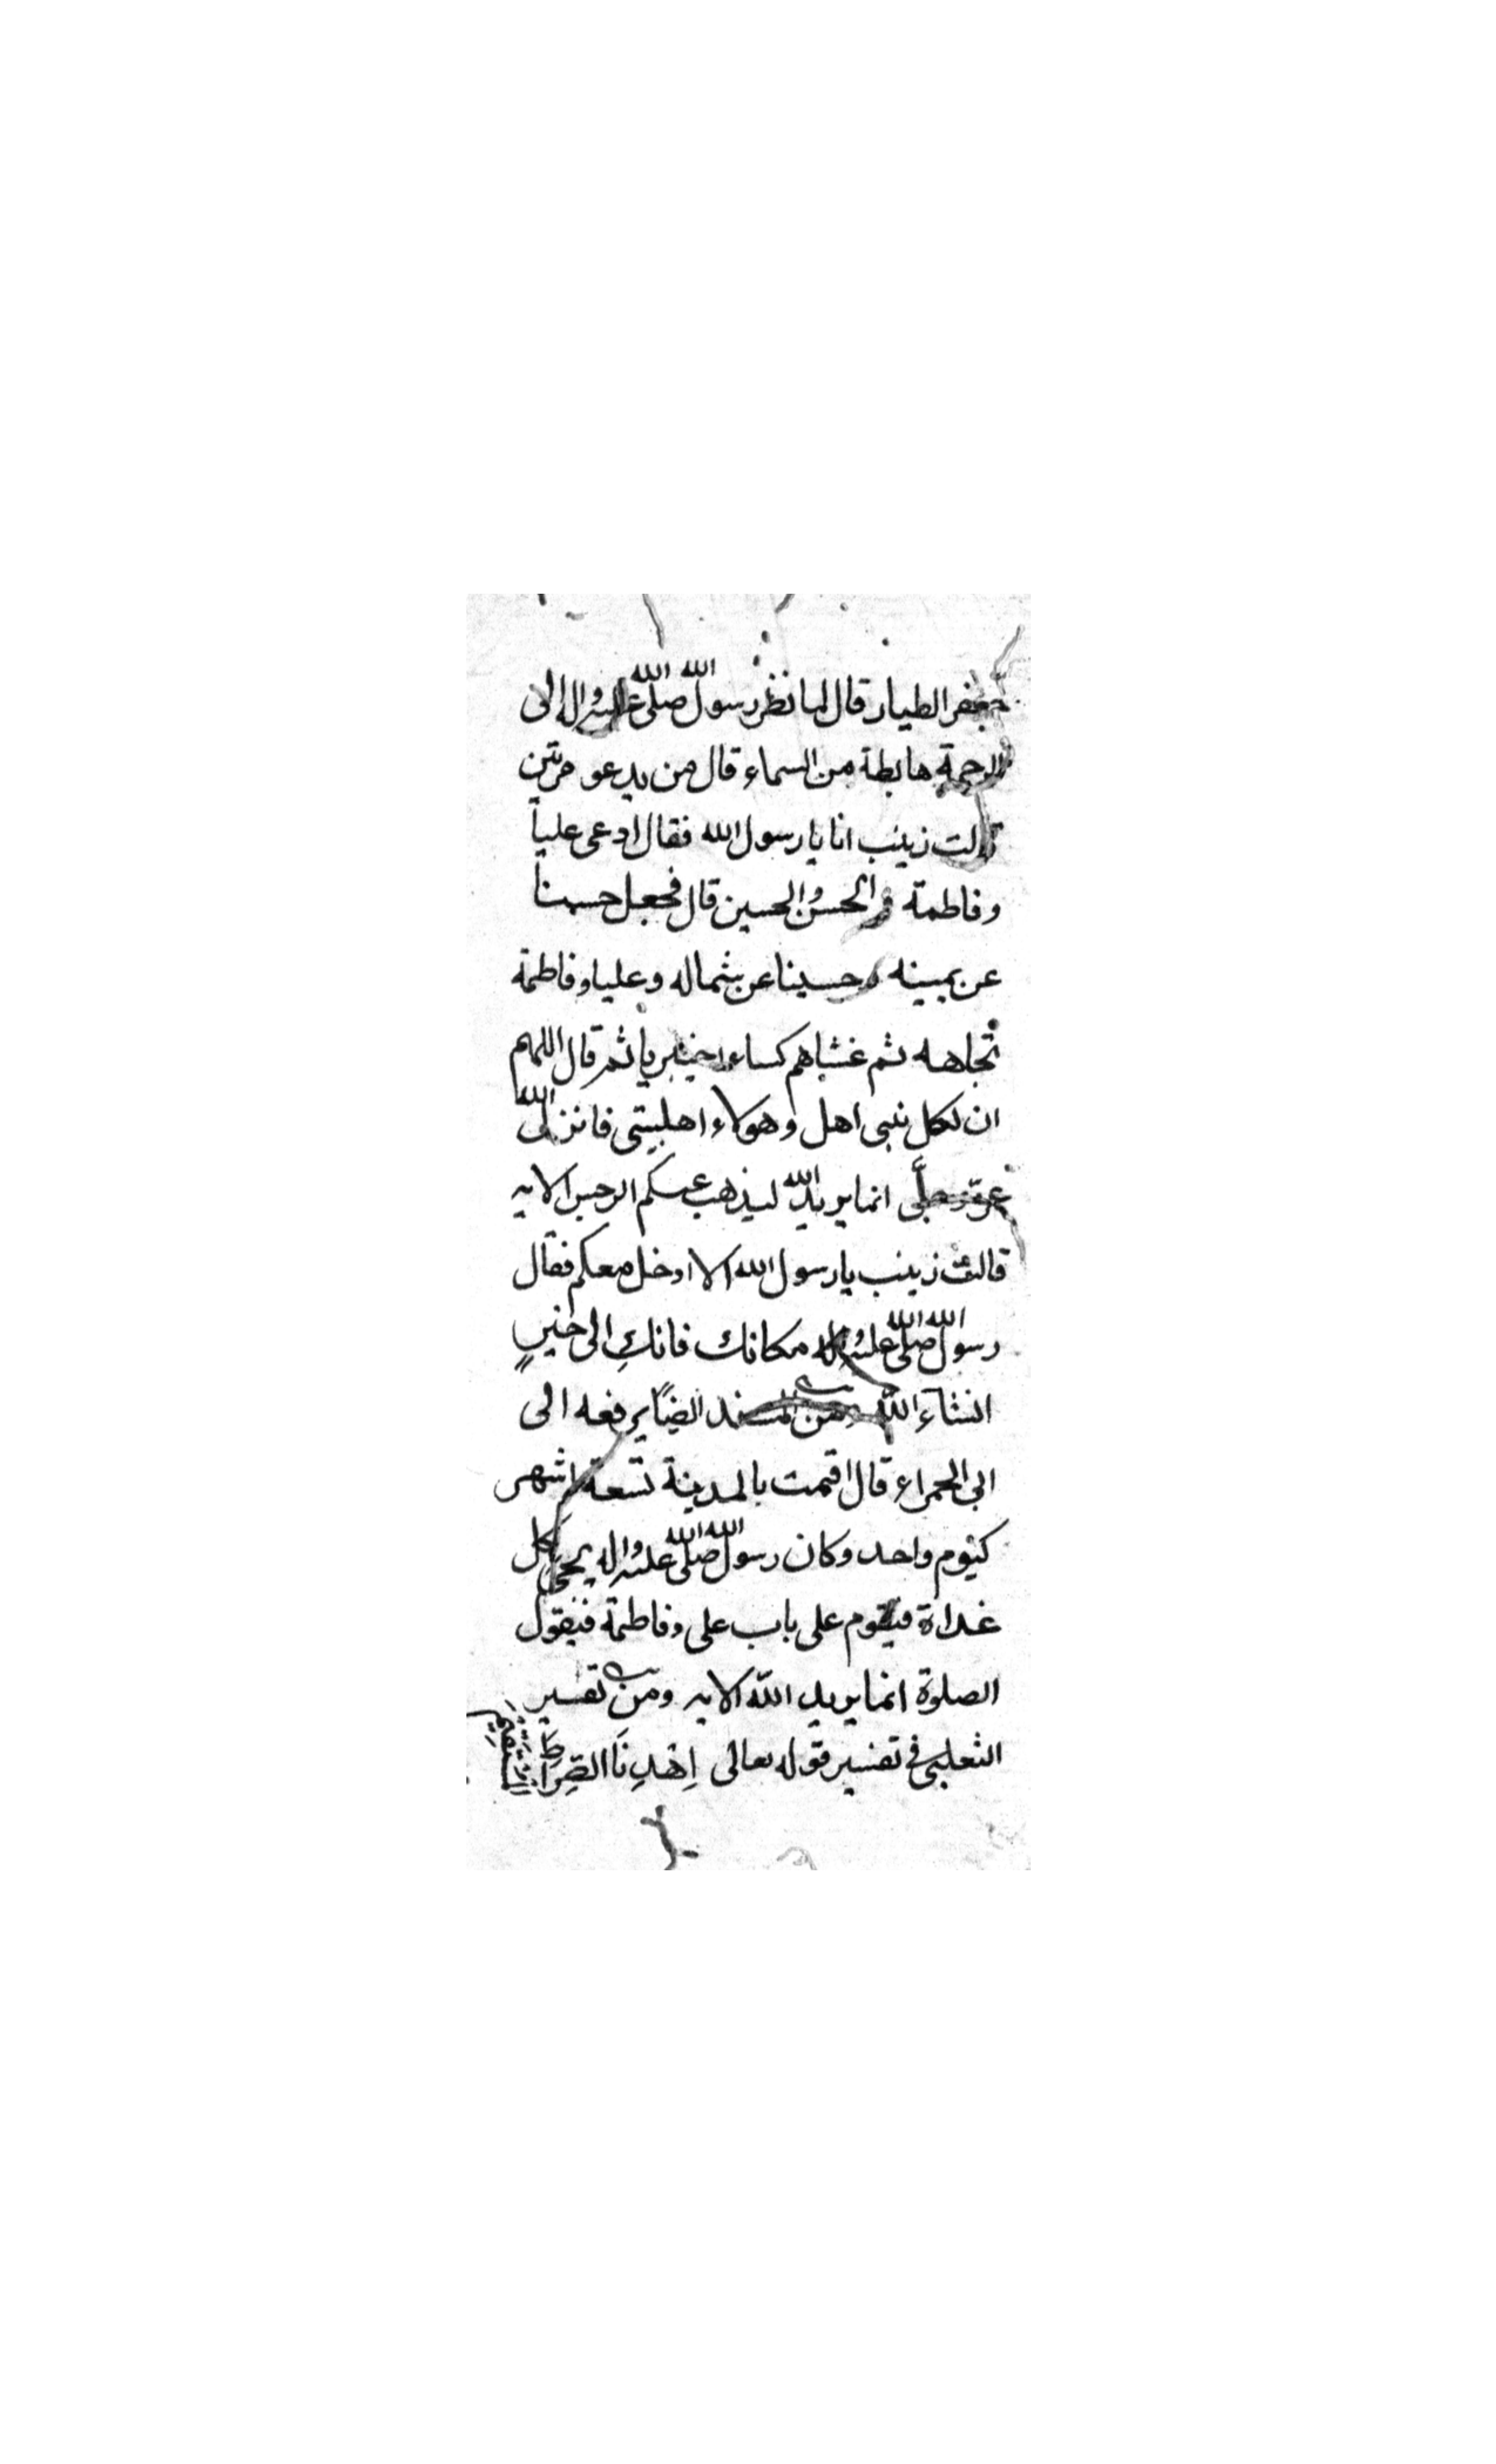 جعفر الطيار قال لما نظر رسول الله صلى الله عليه واله الى
الرحمة هابطة من السماء قال من يدعو مرتين
قالت زينب انا يا رسول الله فقال ادعى علياً
وفاطمة والحسن والحسين قال فجعل حسنا
عن يمينه وحسينا عن شماله وعليا وفاطمة
تجاهه ثم غشاهم كساء خيبريا ثم قال اللهم
ان لكل نبى اهل وهولاء اهلبيتى فانزل الله
عز وجل انما يريد الله ليذهب عنكم الرجس الايه
قالت زينب يا رسول الله الا ادخل معكم فقال
رسول الله صلى الله عليه واله مكانك فانكِ الى خيرٍ
انشاء الله ومن المسند ايضاً يرفعه الى
ابى الحمراء قال اقمت بالمدينة تسعة اشهر
كيوم واحد وكان رسول الله صلى الله عليه واله يجئ كل
غداة فيقوم على باب على وفاطمة فيقول
الصلوة انما يريد الله الايه ومن تفسير
الثعلبى فى تفسير قوله تعالى اِهْدِنَا الصِّرَاطَ المستقيم